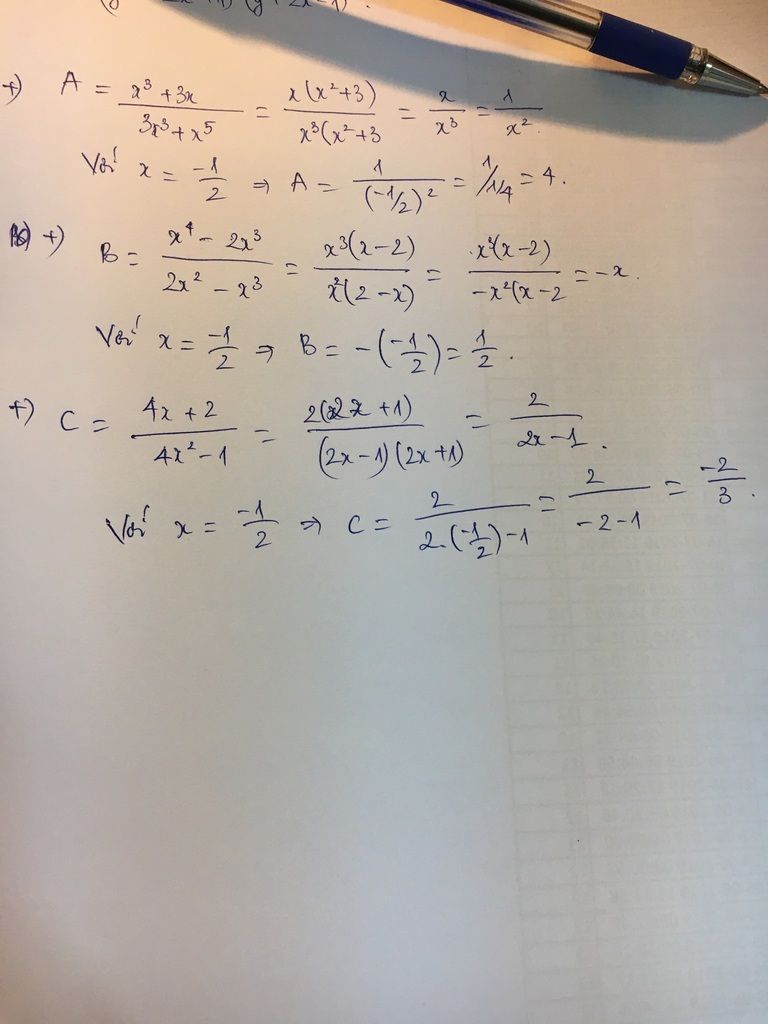 +) A = x³ + 3x / 3x³ + x⁵ = x(x² + 3) / x³(x² + 3 = x / x³ = 1 / x².
Với x = -1/2 ⇒ A = 1 / (-1/2)² = 1/1/4 = 4.
+) B = x⁴ - 2x³ / 2x² - x³ = x³(x - 2) / x²(2 - x) = x³(x - 2) / -x²(x - 2 = -x.
Với x = -1/2 ⇒ B = -(-1/2) = 1/2.
+) C = 4x + 2 / 4x² - 1 = 2(2x + 1) / (2x - 1)(2x + 1) = 2 / 2x - 1.
Với x = -1/2 ⇒ C = 2 / 2.(-1/2) - 1 = 2 / -2 - 1 = -2/3.